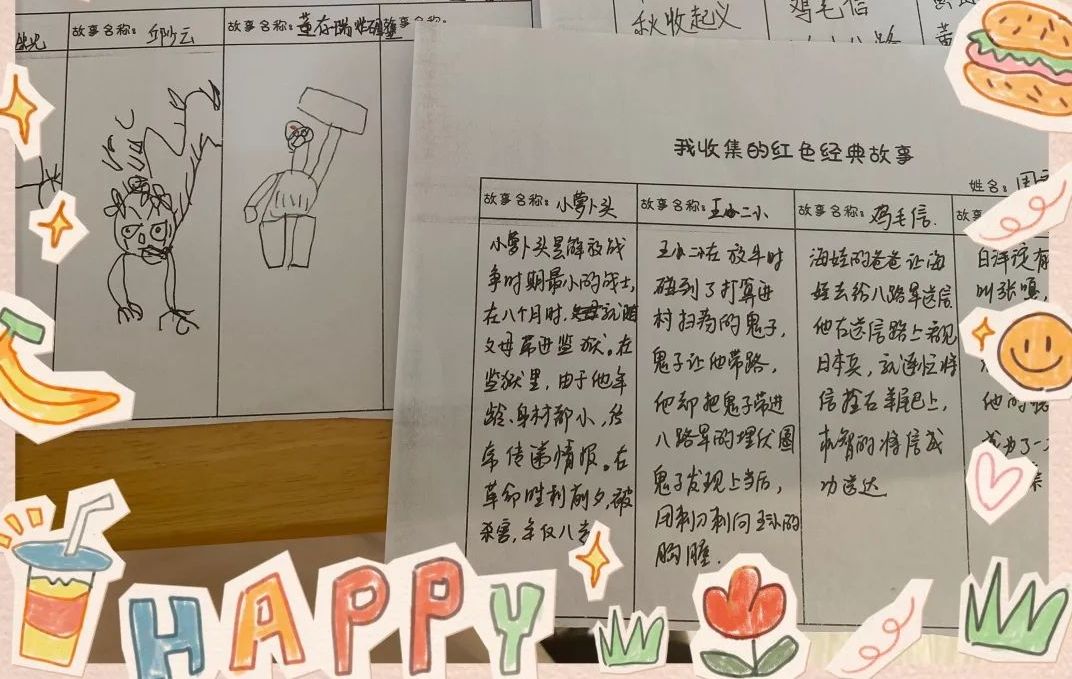 故事名称：邱少云
故事名称：董存瑞
故事名称：
秋收起义
鸡毛信
我收集的红色经典故事
姓名：周
故事名称：小萝卜头
小萝卜头是解放战
争时期最小的战士，
在八个月时，就随
父母带进监狱。在
监狱里，由于他年
龄、身材都小，经
常传递情报。在
革命胜利前夕，被
杀害，年仅八岁
故事名称：王小二小
王小二小在放牛时
碰到了打算进
村扫荡的鬼子，
鬼子让他带路，
他却把鬼子带进
八路军的埋伏圈
鬼子发现上当后，
用刺刀刺向王小的
胸膛．
故事名称：鸡毛信．
海娃的爸爸让海
娃去给八路军送信
他在送信路上看见
日本兵，就连忙将
信拴在羊尾巴上，
机智的将信成
功送达
故事
叫张嘎，
他的
成为了一
HAPPY